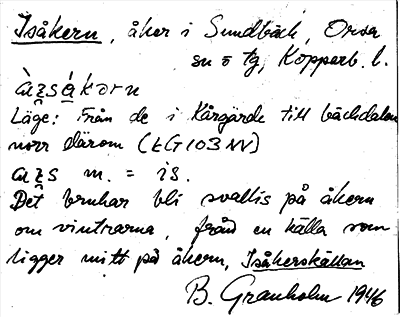 Isåkern, åker i Sundbäck, Orsa
sn o tg, Kopparb. l.
àɪ̯zsákərn
Läge: Från de i Kårgärde till bäckdalen
norr därom (EG 103 NV)
aɪ̯s m. = is.
Det brukar bli svallis på åkern
om vintrarna, från en källa som
ligger mitt på åkern, Isåkerskällan
B. Granholm 1946